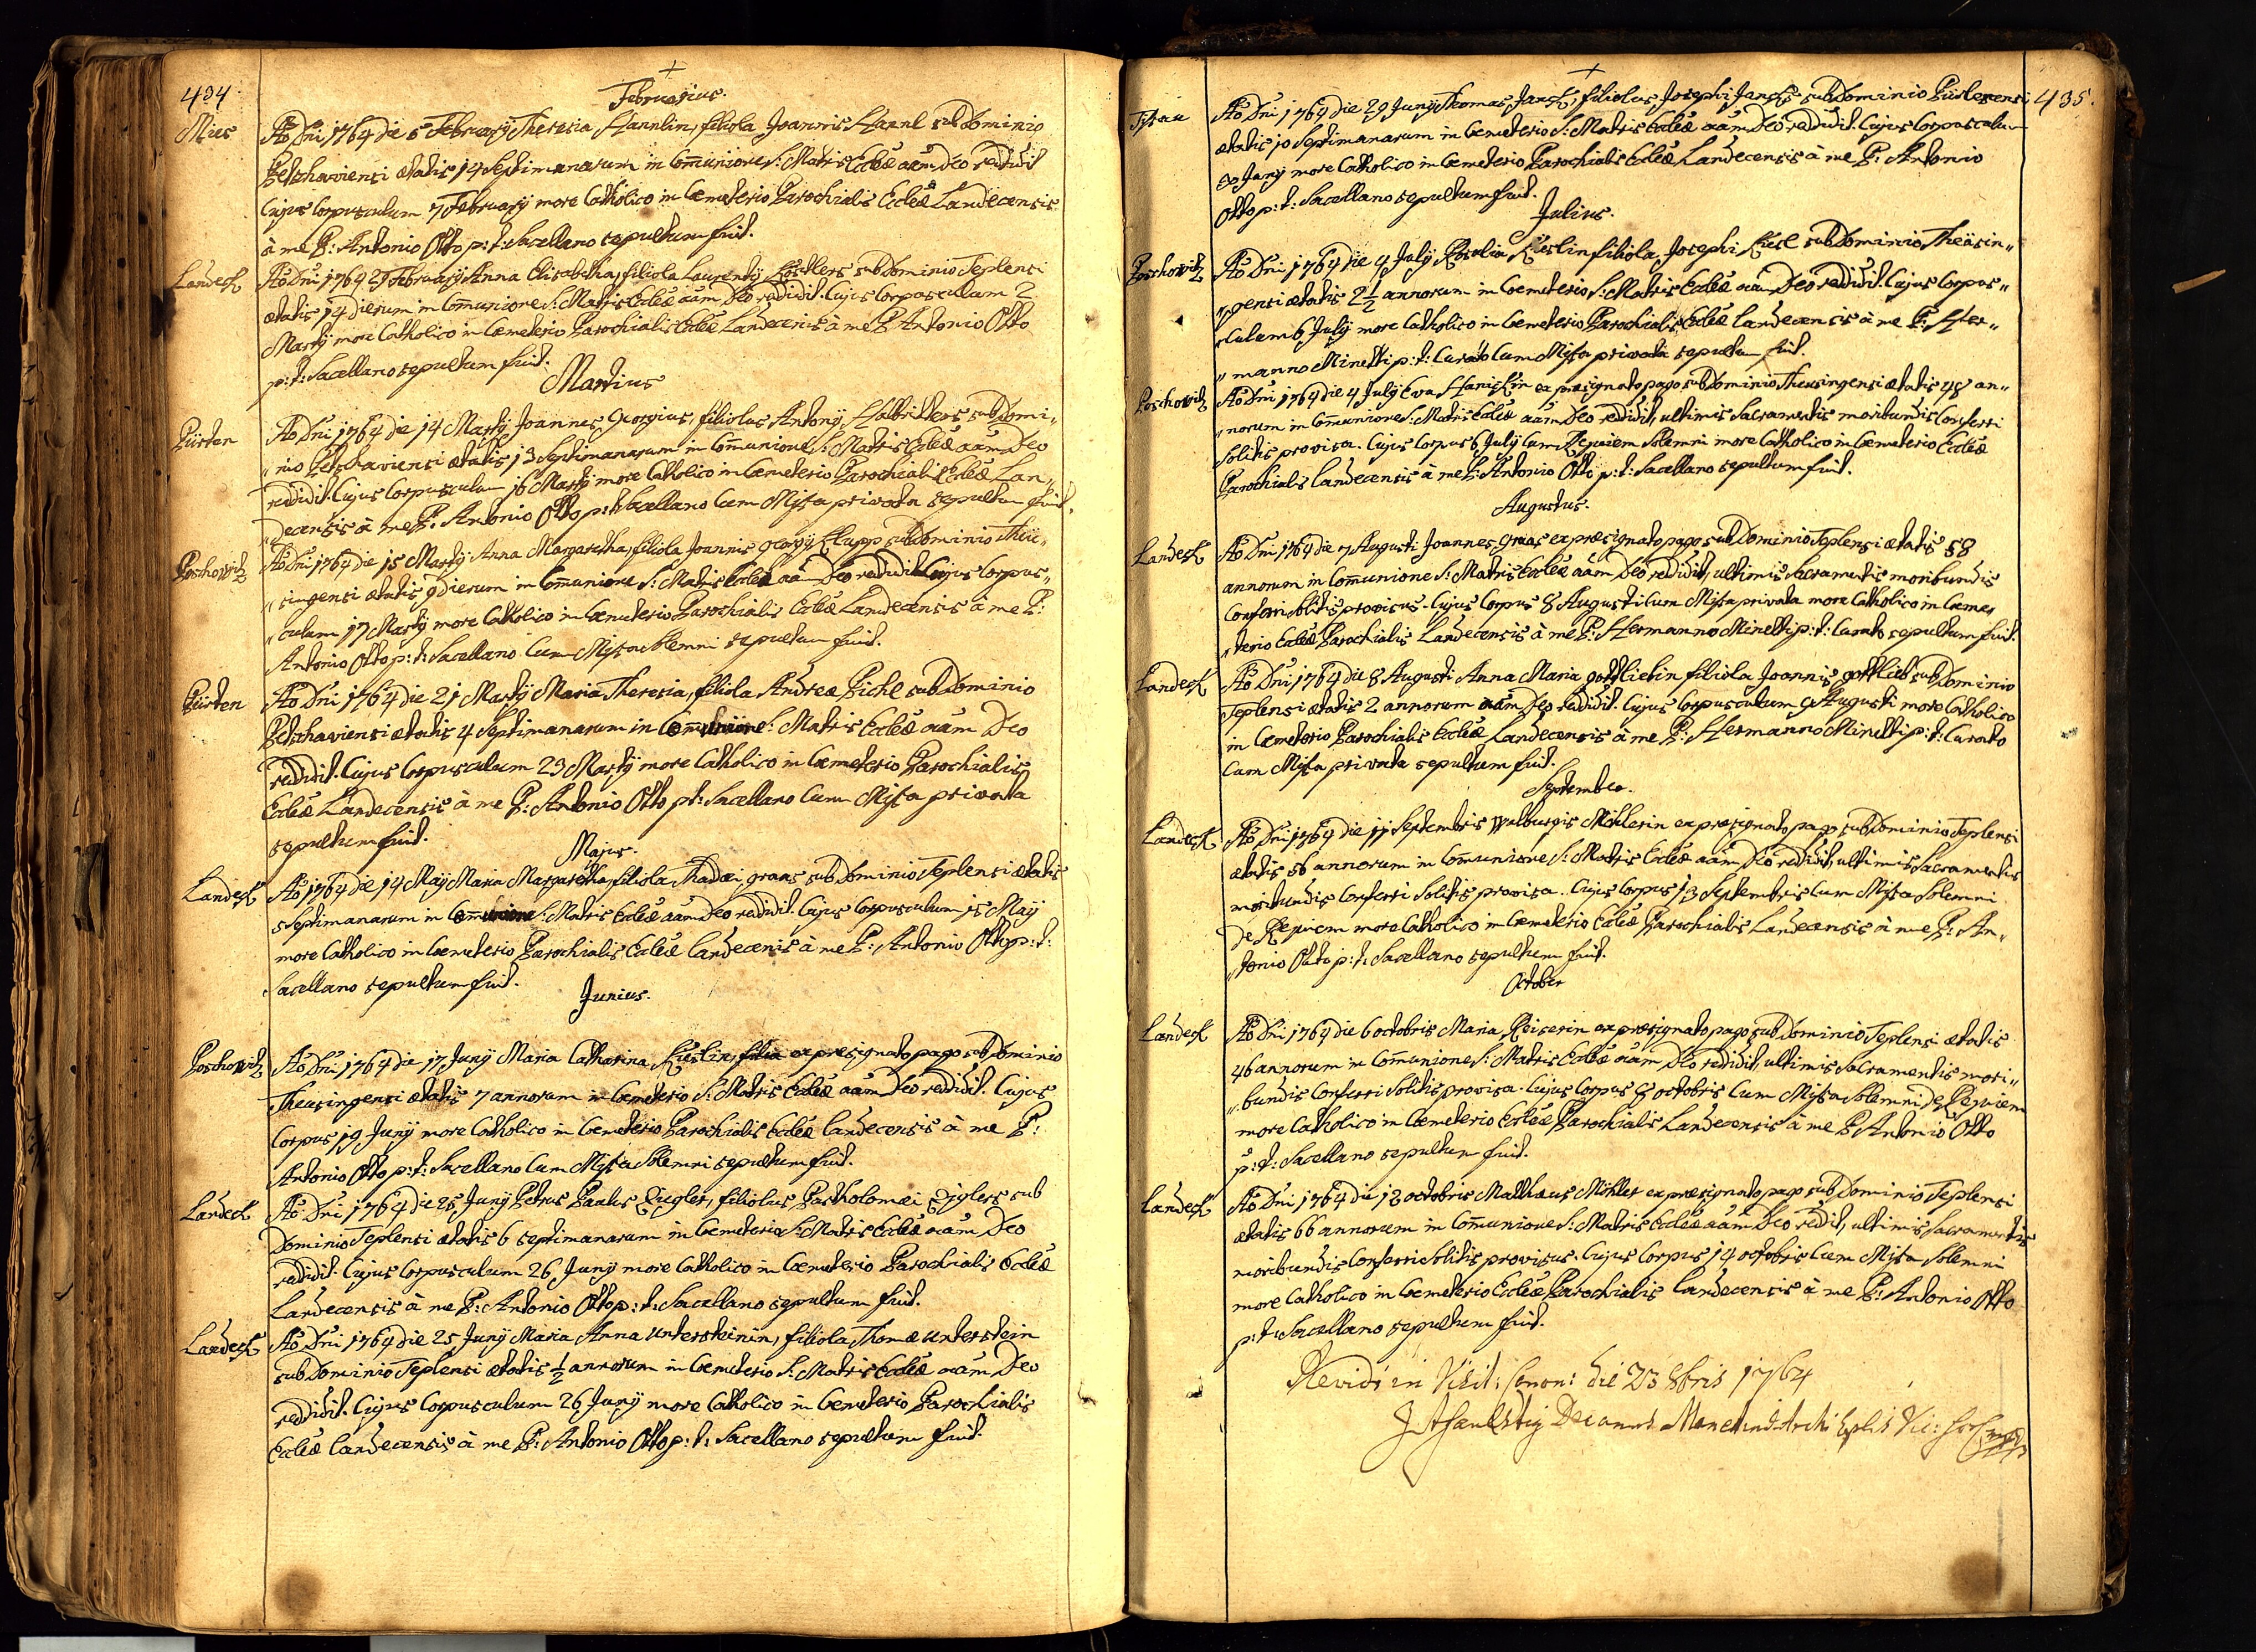 434.
+
Februarius.
Mies
Aõ Dni 1764 die 5 Februarÿ Theresia Hannlin, filiola Joannis Hannl sub Dominio
Petschaviensi ætatis 14 Septimanarum in Com̃unione S: Matris Eccleæ aãm Deo reddidit
Cujus Corpusculum 7 Februarÿ more Catholico in Cæmeterio Parochialis Eccleæ Landecensis
à me P: Antonio Otto p: t: Sacellano sepultum fuit.
Landeck
Aõ Dni 1764 27 Februarÿ Anna Elisabetha, filiola Laurentÿ Köstlers sub Dominio Teplensi
ætatis 14 dierum in Com̃unione S: Matris Eccleæ aãm Deo reddidit. Cujus Corpusculum 2
Martÿ more Catholico in Cæmeterio Parochialis Eccleæ Landecensis à me P Antonio Otto
p: t: Sacellano sepultum fuit.
Martius
Pürten
Aõ Dni 1764 die 14 Martÿ Joannes Georgius, filiolus Antonÿ Halbritters sub Domi„
„nio Petschaviensi ætatis 13 Septimanarum in Com̃unione S: Matris Eccleæ aãm Deo
reddidit. Cujus Corpusculum 16 Martÿ more Catholico in Cæmeterio Parochialis Eccleæ Lan„
„decensis à me P: Antonio Otto p: t: Sacellano Cum Missa privata sepultum fuit.
Poschowitz
Aõ Dni 1764 die 15 Martÿ Anna Margaretha, filiola Joannis Georgÿ Klupp sub Dominio Theü„
„singensi ætatis 9 dierum in Com̃unione S: Matris Eccleæ aãm Deo reddidit Cujus Corpus„
„culum 17 Martÿ more Catholico in Cæmeterio Parochialis Eccleæ Landecensis à me P:
Antonio Otto p: t: Sacellano Cum Missa Solemni sepultum fuit.
Pürten
Aõ Dni 1764 die 21 Martÿ Maria Theresia, filiola Andreæ Pichl sub Dominio
Petschaviensi ætatis 4 Septimanarum in Com̃unione S: Matris Eccleæ aãm Deo
reddidit. Cujus Corpusculum 23 Martÿ more Catholico in Cæmeterio Parochialis
Eccleæ Landecensis à me P: Antonio Otto p: t: Sacellano Cum Missa privata
sepultum fuit.
Majus.
Landeck
Aõ 1764 die 14 Maÿ Maria Margaretha filiola Thadæi graas sub Dominio Teplensi ætatis
5 Septimanarum in Com̃unione S: Matris Eccleæ aãm Deo reddidit. Cujus Corpusculum 15 Maÿ
more Catholico in Cæmeterio Parochialis Eccleæ Landecensis à me P: Antonio Otto p: t:
Sacellano sepultum fuit.
Junius.
Poschowitz
Aõ Dni 1764 die 17 Junÿ Maria Catharina Küslin, filia ex præsignato pago sub Dominio
Theusingensi ætatis 7 annorum in Cæmeterio S: Matris Eccleæ aãm Deo reddidit. Cujus
Corpus 19 Junÿ more Catholico in Cæmeterio Parochialis Eccleæ Landecensis à me P:
Antonio Otto p: t: Sacellano Cum Missa Solemni sepultum fuit.
Landeck
Aõ Dni 1764 die 25 Junÿ Petrus Paulus Ziegler, filiolus Bartholomæi Ziglers sub
Dominio Teplensi ætatis 6 septimanarum in Cæmeterio S: Matris Eccleæ aãm Deo
reddidit. Cujus Corpusculum 26 Junÿ more Catholico in Cæmeterio Parochialis Eccleæ
Landecensis à me P: Antonio Otto p: t: Sacellano sepultum fuit.
Landeck
Aõ Dni 1764 die 25 Junÿ Maria Anna Untersteinin, filiola Thomæ Unterstein
sub Dominio Teplensi ætatis ½ annorum in Cæmeterio S: Matris Eccleæ aãm Deo
reddidit. Cujus Corpusculum 26 Junÿ more Catholico in Cæmeterio Parochialis
Eccleæ Landecensis à me P: Antonio Otto p: t: Sacellano sepultum fuit.
+
435.
Aõ Dni 1764 die 29 Junÿ Thomas Jansk, filiolus Josephi sub Dominio
ætatis 10 Septimanarum in Cæmeterio S: Matris Eccleæ aãm Deo reddidit. Cujus Corpusculum
Junÿ more Catholico in Cæmeterio Parochialis Eccleæ Landecensis à me P: Antonio
Otto p: t: Sacellano sepultum fuit.
Julius.
Poschowitz
Aõ Dni 1764 die 4 Julÿ Rosalia Küslin filiola Josephi Küsl sub Dominio Theüsin„
„gensi ætatis 2½ annorum in Cæmeterio S: Matris Eccleæ aãm Deo reddidit. Cujus Corpus„
„culum 6 Julÿ more Catholico in Cæmeterio Parochialis Eccleæ Landecensis à me P: Her„
„manno Minetti p: t: Curato Cum Missa privata sepultum fuit.
Poschowitz
Aõ Dni 1764 die 4 Julÿ Eva Hanickin ex præsignato pago sub Dominio Theusingensi ætatis 48 an„
„norum in Com̃unione S: Matris Eccleæ aãm Deo reddidit, ultimis Sacramentis moribundis Conferri
Solitis provisa. Cujus Corpus 6 Julÿ Cum Requiem Solemni more Catholico in Cæmeterio Eccleæ
Parochialis Landecensis à me P: Antonio Otto p: t: Sacellano sepultum fuit.
Augustus.
Landeck
Aõ Dni 1764 die 7 Augusti Joannes graas ex præsignato pago sub Dominio Teplensi ætatis 58
annorum in Com̃unione S: Matris Eccleæ aãm Deo reddidit, ultimis Sacramentis moribundis
Conferri Solitis provisus. Cujus Corpus 8 Augusti Cum Missa privata more Catholico in Cæme„
„terio Eccleæ Parochialis Landecensis à me P: Hermanno Minetti p: t: Curato sepultum fuit.
Landeck
Aõ Dni 1764 die 8 Augusti Anna Maria gottliebin filiola Joannis gottlieb sub Dominio
Teplensi ætatis 2 annorum aãm Deo reddidit. Cujus Corpusculum 9 Augusti more Catholico
in Cæmeterio Parochialis Eccleæ Landecensis à me P: Hermanno Minetti p: t: Curato
Cum Missa privata sepultum fuit.
September.
Landeck
Aõ Dni 1764 die 11 Septembris Walburgis Möhlerin ex præsignato pago sub Dominio Teplensi
ætatis 56 annorum in Com̃unione S: Matris Eccleæ aãm Deo reddidit, ultimis Sacramentis
moribundis Conferri Solitis provisa. Cujus Corpus 13 Septembris Cum Missa Solemni
de Requiem more Catholico in Cæmeterio Eccleæ Parochialis Landecensis à me P: An„
„tonio Otto p: t: Sacellano sepultum fuit.
October
Landeck
Aõ Dni 1764 die 6 octobris Maria Reiserin ex præsignato pago sub Dominio Teplensi ætatis
46 annorum in Com̃unione S: Matris Eccleæ aãm Deo reddidit, ultimis Sacramentis mori„
„bundis Conferri Solitis provisa. Cujus Corpus 8 octobris Cum Missa Solemni de Requiem
more Catholico in Cæmeterio Eccleæ Parochialis Landecensis à me P Antonio Otto
p: t: Sacellano sepultum fuit.
Landeck
Aõ Dni 1764 die 12 octobris Matthæus Möhler ex præsignato pago sub Dominio Teplensi
ætatis 66 annorum in Com̃unione S: Matris Eccleæ aãm Deo reddit, ultimis Sacramentis
moribundis Conferri Solitis provisus. Cujus Corpus 14 octobris Cum Missa Solemni
more Catholico in Cæmeterio Eccleæ Parochialis Landecensis à me P: Antonio Otto
p: t: Sacellano sepultum fuit.
Revidi in Visit: Canon: die 23 8bris 1764
Decanus